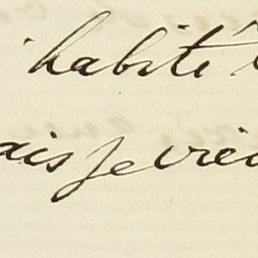 habité
ais je vie